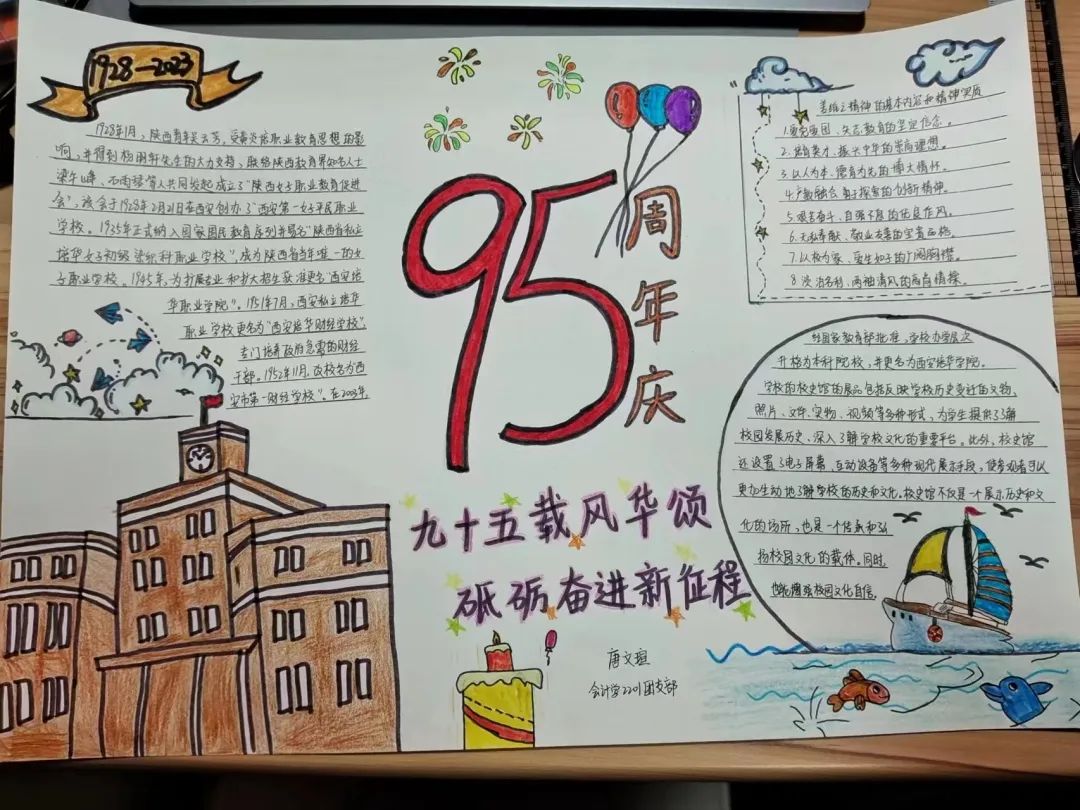 1928-2023
1928年1月，陕西省吴云芳，受黄炎培职业教育思想的影
响，并得到杨明轩先生的大力支持，联络陕西教育界知名人士
梁午峰、石雨琴等人共同发起成立了"陕西女子职业教育促进
会"，该会于1928年2月21日在西安创办了"西安第一女子平民职业
学校。1935年正式纳入国家国民教育序列并易名"陕西省私立
培华女子初级染织科职业学校"，成为陕西省当年唯一的女
子职业学校。1945年，为扩展专业和扩大招生获准更名"西安培
华职业学院"。1951年7月，西安私立培华
职业学校更名为"西安培华财经学校"，
专门培养政府急需的财经
干部。1952年11月，改校名为西
安市第一财经学校"。在2003年，
95
周年庆
九十五载风华颂
砥砺奋进新征程
唐文瑄
会计学2201团支部
姜维之精神的基本内容和精神实质
1.爱党爱国、矢志教育的坚定信念。
2.保育英才、振兴中华的崇高理想。
3.以人为本、德育为先的博大情怀。
4.产教融合、勇于探索的创新精神。
5.艰苦奋斗、自强不息的优良作风。
6.无私奉献、敬业友善的宝贵品格。
7.以校为家、爱生如子的广阔胸襟。
8.淡泊名利、两袖清风的高尚情操。
经国家教育部批准，学校办学层次
升格为本科院校，并更名为西安培华学院。
学校的校史馆的展品包括反映学校历史变迁的文物、
照片、文件、实物、视频等多种形式，为学生提供了了解
校园发展历史、深入了解学校文化的重要平台。此外，校史馆
还设置了电子屏幕、互动设备等多种现代展示手段，使参观者可以
更加生动地了解学校的历史和文化。校史馆不仅是一个展示历史和文
化的场所，也是一个传承和弘
扬校园文化的载体。同时，
也能增强校园文化自信。